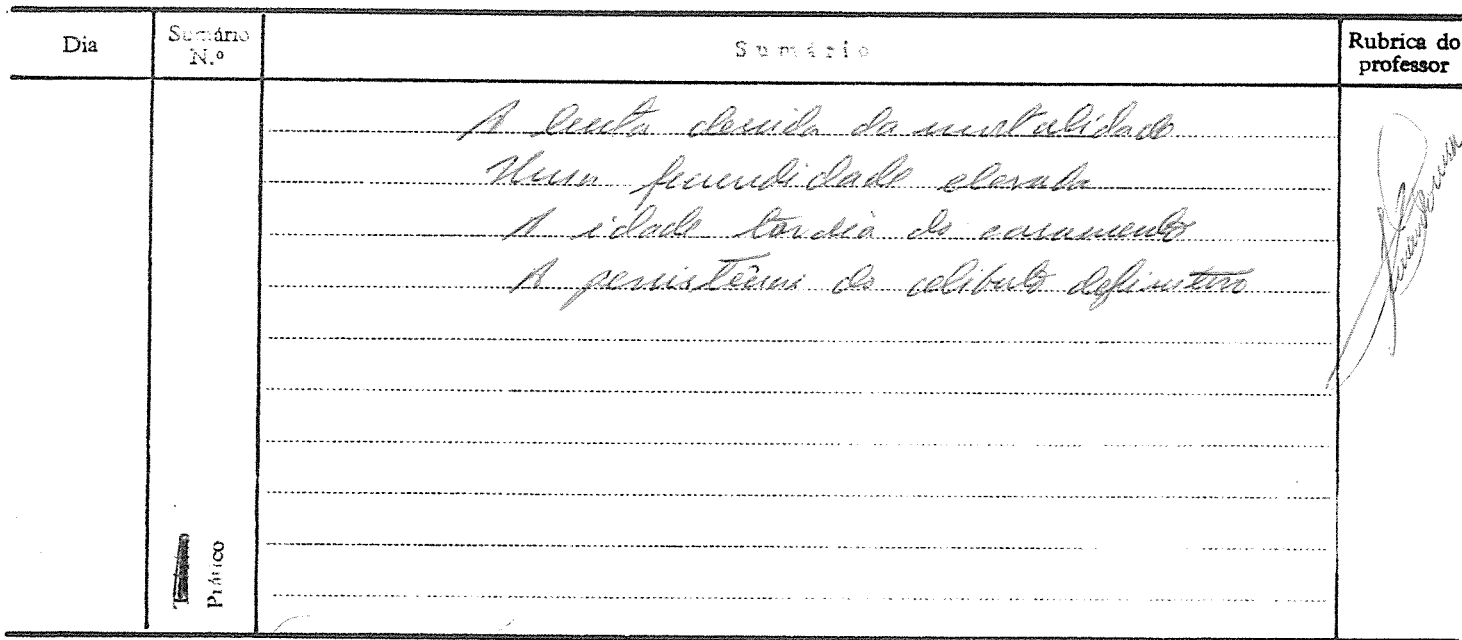 Dia
Sumário N.º
Sumário
Rubrica do professor
A lenta descida da mortalidade
Uma fecundidade elevada
A idade tardia do casamento
A persistência do celibato definitivo
Prático